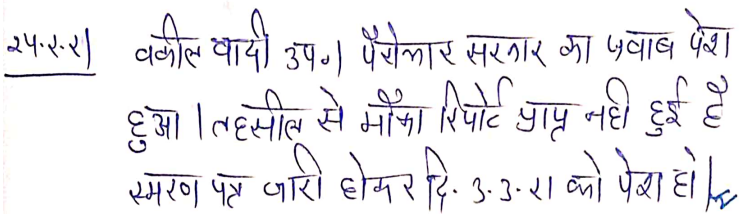 २५.२.२१ वकील वादी उप०। पैरोकार सरकार का जवाब पेश
हुआ। तहसील से मौका रिपोर्ट प्राप्त नही हुई है
स्मरण पत्र जारी होकर दि. ३.३.२१ को पेश हो।